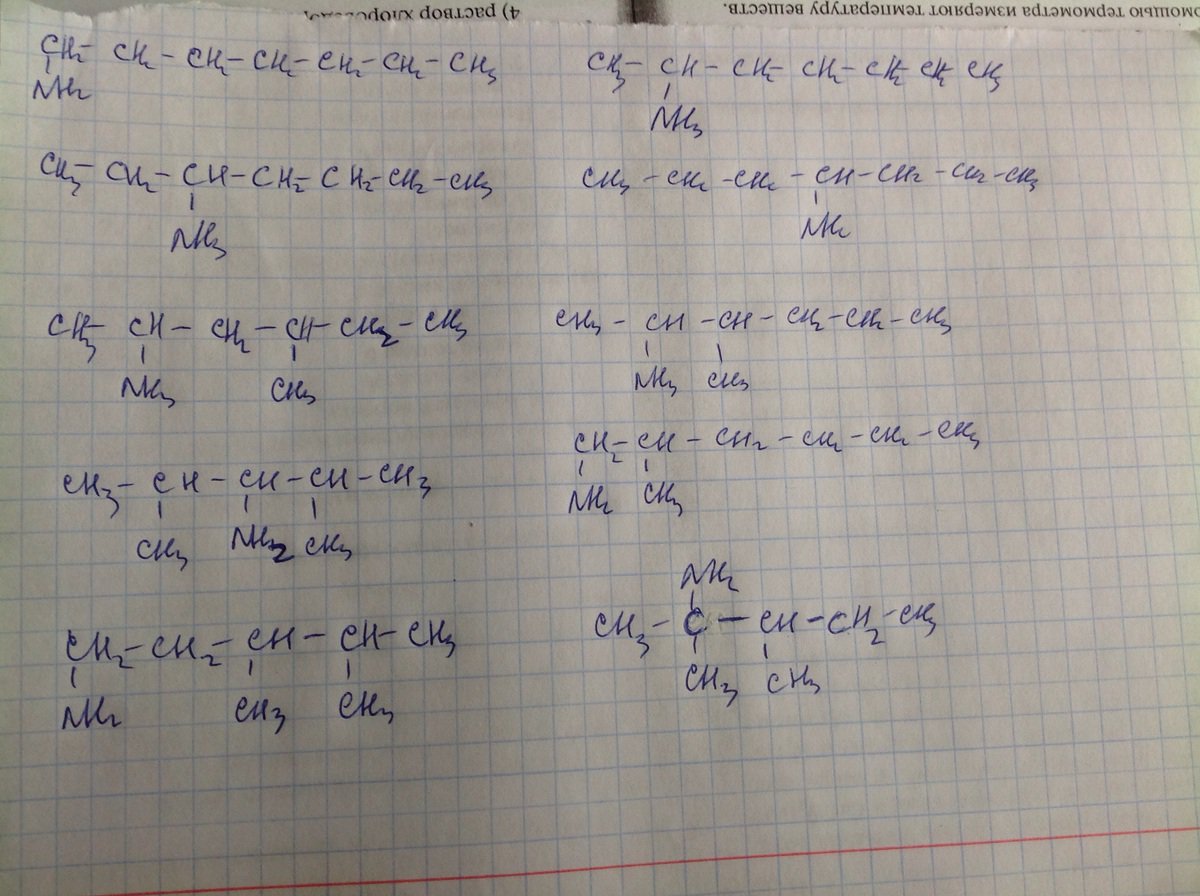 4) раствор хлоров
мощью термометра измеряют температуру веществ.
CH2- CH2 - CH2 - CH2 - CH2 - CH2 - CH3
NH2
CH3 - CH - CH2 - CH2 - CH2 CH2 CH3
NH3
CH3 - CH2 - CH - CH2 - CH2 - CH2 - CH3
NH3
CH3 - CH2 - CH2 - CH - CH2 - CH2 - CH3
NH2
CH3 - CH - CH2 - CH - CH2 - CH3
NH3 CH3
CH3 - CH - CH - CH2 - CH2 - CH3
NH3 CH3
CH3 - CH - CH - CH - CH3
CH3 NH2 CH3
CH2 - CH - CH2 - CH2 - CH2 - CH3
NH2 CH3
CH2 - CH2 - CH - CH - CH3
NH2 CH3 CH3
NH2
CH3 - C - CH - CH2 - CH3
CH3 CH3